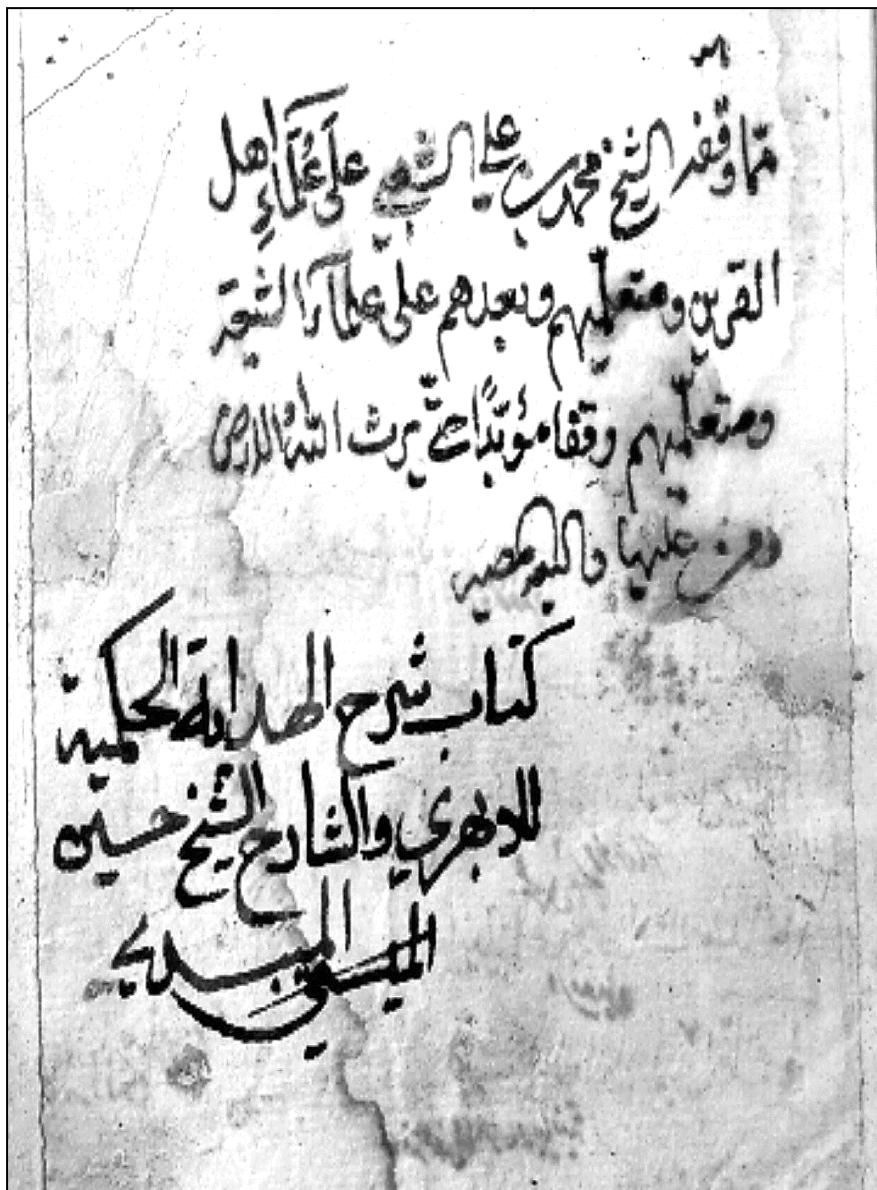 مما وقفه الشيخ محمد بن علي الشيعي على علماء اهل
القرين ومتعلميهم وبعدهم على علماء الشيعة
ومتعلميهم وقفا مؤبّدًا حتى يرث الله الارض
ومن عليها واليه مصيره
كتاب شرح الهداية الحكمية
للابهري والشارح الشيخ حسين
الميبدي
الميسمي